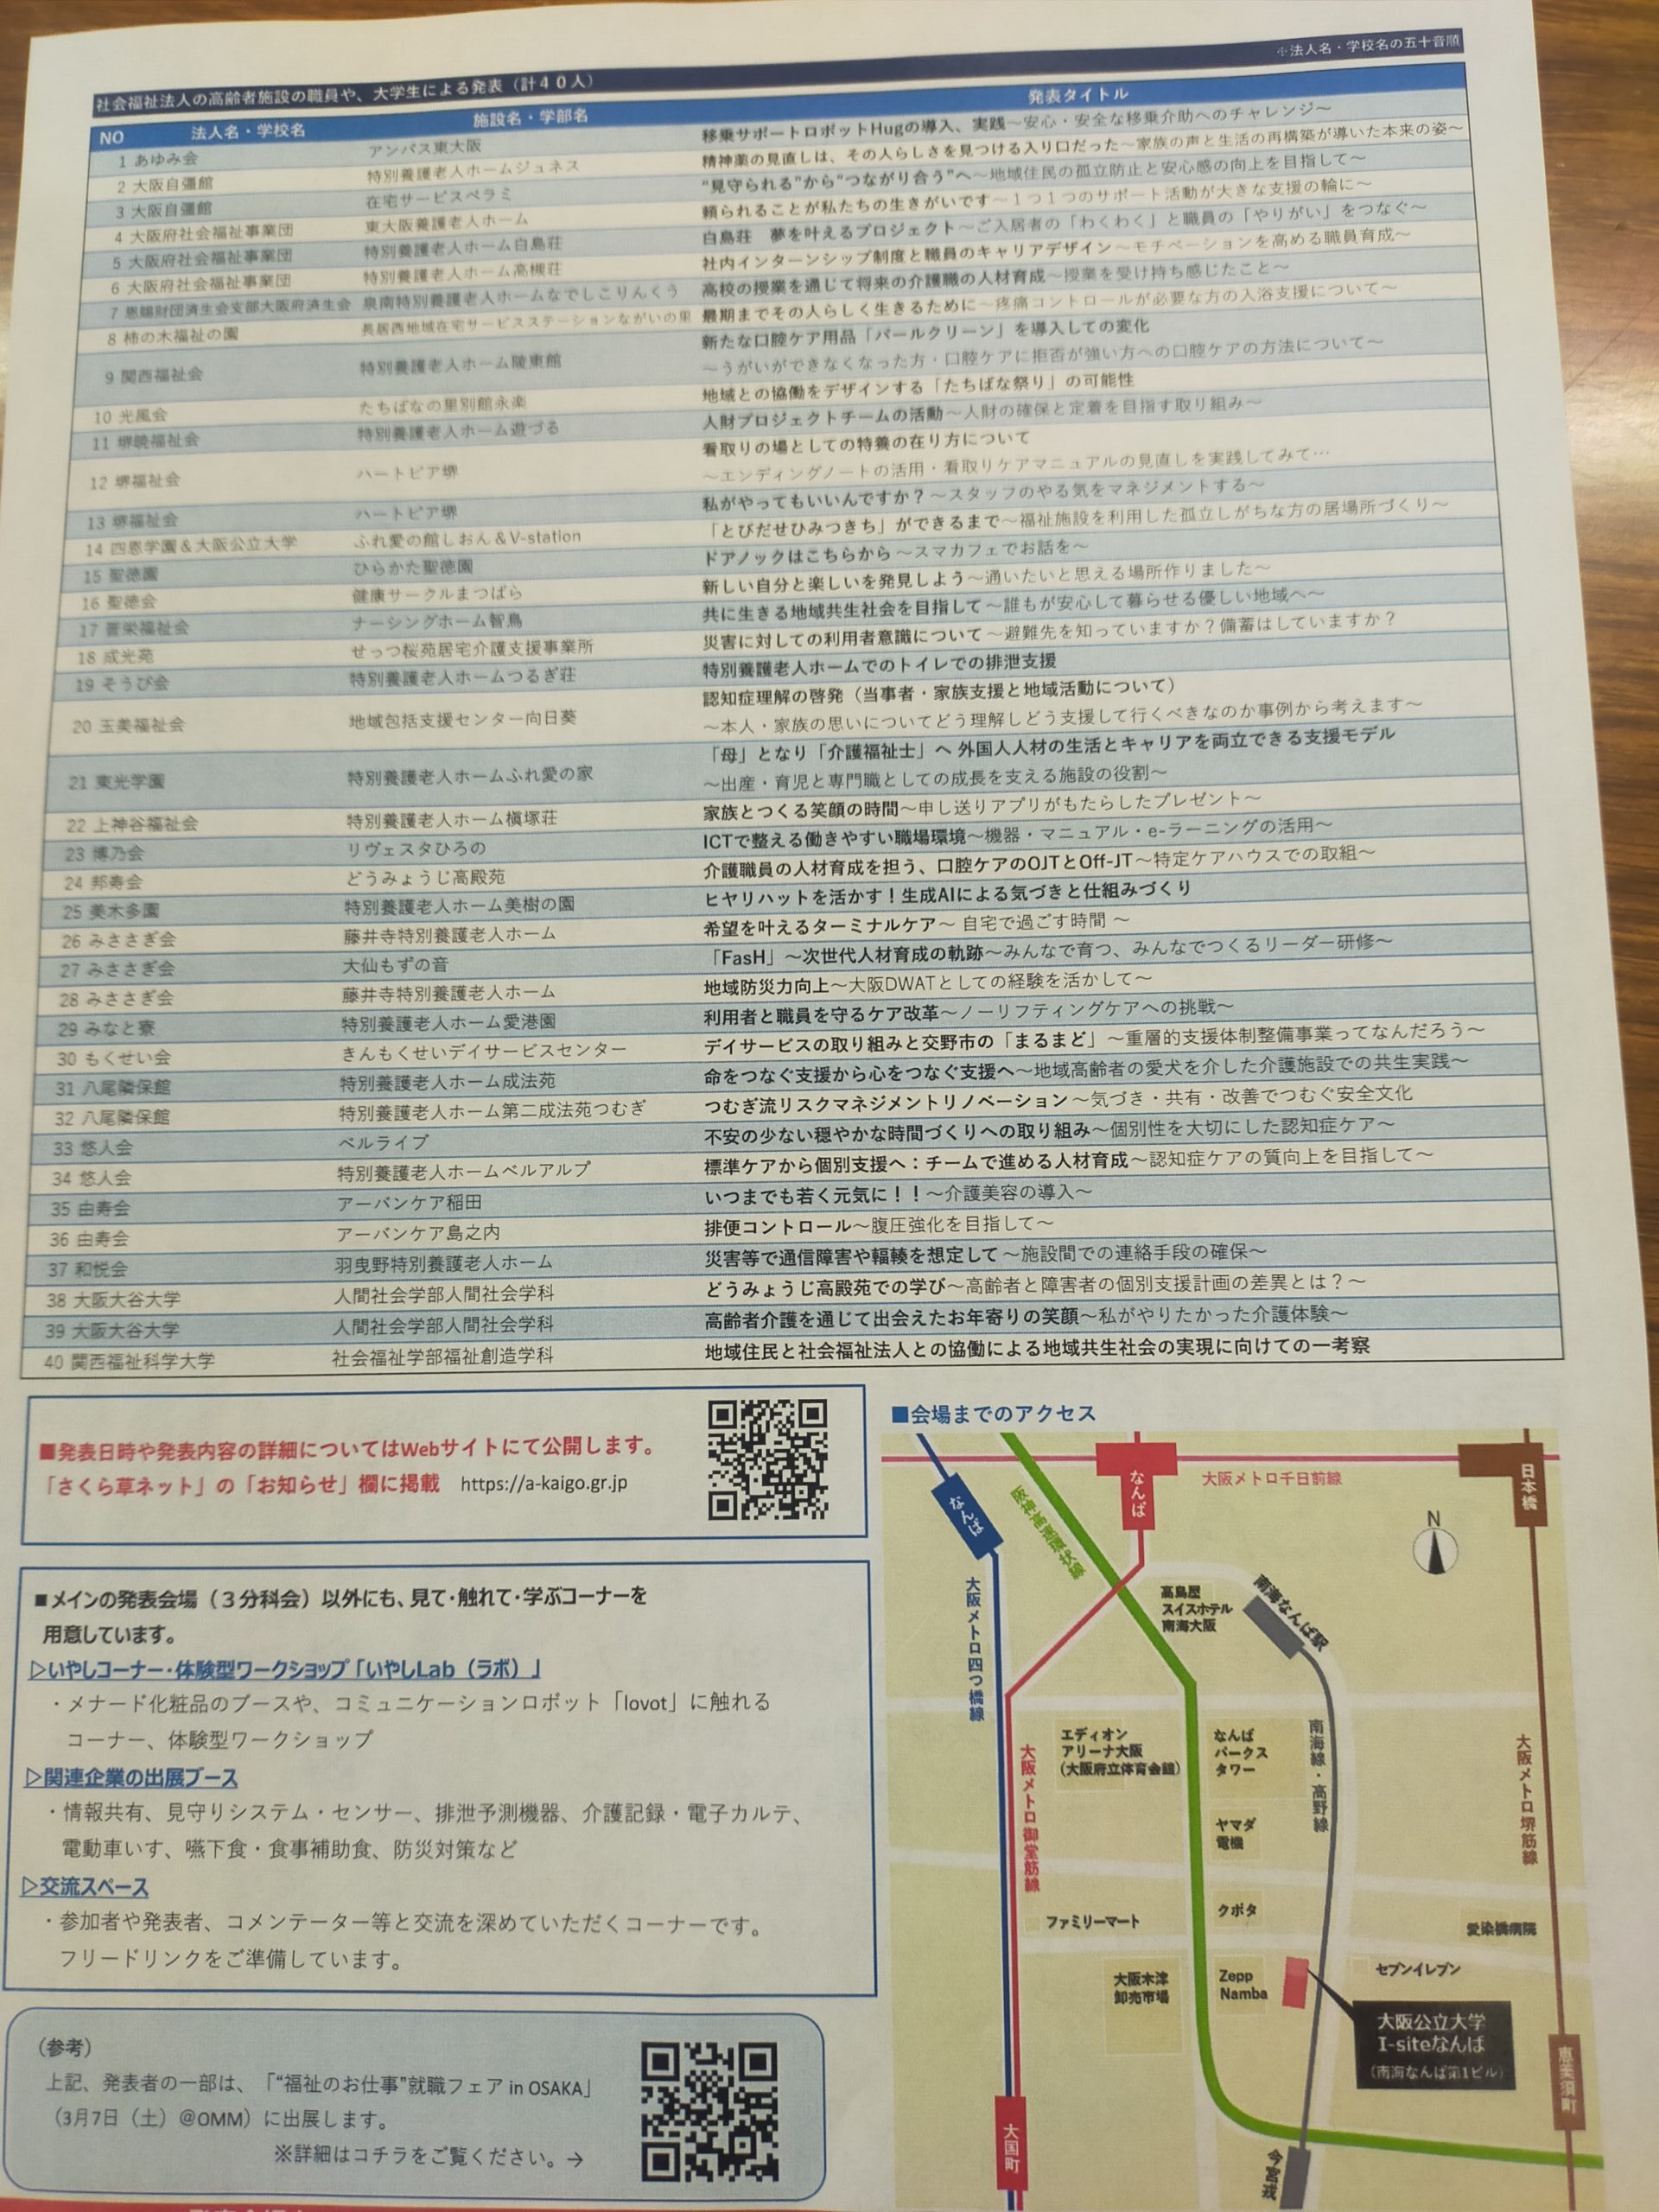 ※法人名・学校名の五十音順
社会福祉法人の高齢者施設の職員や、大学生による発表（計４０人）
NO 法人名・学校名 施設名・学部名 発表タイトル
1 あゆみ会 アンパス東大阪 移乗サポートロボットHugの導入、実践～安心・安全な移乗介助へのチャレンジ～
2 大阪自彊館 特別養護老人ホームジュネス 精神薬の見直しは、その人らしさを見つける入り口だった～家族の声と生活の再構築が導いた本来の姿～
3 大阪自彊館 在宅サービスベラミ “見守られる”から“つながり合う”へ～地域住民の孤立防止と安心感の向上を目指して～
4 大阪府社会福祉事業団 東大阪養護老人ホーム 頼られることが私たちの生きがいです～１つ１つのサポート活動が大きな支援の輪に～
5 大阪府社会福祉事業団 特別養護老人ホーム白島荘 白島荘　夢を叶えるプロジェクト～ご入居者の「わくわく」と職員の「やりがい」をつなぐ～
6 大阪府社会福祉事業団 特別養護老人ホーム高槻荘 社内インターンシップ制度と職員のキャリアデザイン～モチベーションを高める職員育成～
7 恩賜財団済生会支部大阪府済生会 泉南特別養護老人ホームなでしこりんくう 高校の授業を通じて将来の介護職の人材育成～授業を受け持ち感じたこと～
8 柿の木福祉の園 長居西地域在宅サービスステーションながいの里 最期までその人らしく生きるために～疼痛コントロールが必要な方の入浴支援について～
9 関西福祉会 特別養護老人ホーム陵東館 新たな口腔ケア用品「パールクリーン」を導入しての変化
～うがいができなくなった方・口腔ケアに拒否が強い方への口腔ケアの方法について～
10 光風会 たちばなの里別館永楽 地域との協働をデザインする「たちばな祭り」の可能性
11 堺暁福祉会 特別養護老人ホーム遊づる 人財プロジェクトチームの活動～人財の確保と定着を目指す取り組み～
12 堺福祉会 ハートピア堺 看取りの場としての特養の在り方について
～エンディングノートの活用・看取りケアマニュアルの見直しを実践してみて…
13 堺福祉会 ハートピア堺 私がやってもいいんですか？～スタッフのやる気をマネジメントする～
14 四恩学園＆大阪公立大学 ふれ愛の館しおん＆V-station 「とびだせひみつきち」ができるまで～福祉施設を利用した孤立しがちな方の居場所づくり～
15 聖徳園 ひらかた聖徳園 ドアノックはこちらから～スマカフェでお話を～
16 聖徳会 健康サークルまつばら 新しい自分と楽しいを発見しよう～通いたいと思える場所作りました～
17 晋栄福祉会 ナーシングホーム智鳥 共に生きる地域共生社会を目指して～誰もが安心して暮らせる優しい地域へ～
18 成光苑 せっつ桜苑居宅介護支援事業所 災害に対しての利用者意識について～避難先を知っていますか？備蓄はしていますか？
19 そうび会 特別養護老人ホームつるぎ荘 特別養護老人ホームでのトイレでの排泄支援
20 玉美福祉会 地域包括支援センター向日葵 認知症理解の啓発（当事者・家族支援と地域活動について）
～本人・家族の思いについてどう理解しどう支援して行くべきなのか事例から考えます～
21 東光学園 特別養護老人ホームふれ愛の家 「母」となり「介護福祉士」へ 外国人人材の生活とキャリアを両立できる支援モデル
～出産・育児と専門職としての成長を支える施設の役割～
22 上神谷福祉会 特別養護老人ホーム槇塚荘 家族とつくる笑顔の時間～申し送りアプリがもたらしたプレゼント～
23 博乃会 リヴェスタひろの ICTで整える働きやすい職場環境～機器・マニュアル・e-ラーニングの活用～
24 邦寿会 どうみょうじ高殿苑 介護職員の人材育成を担う、口腔ケアのOJTとOff-JT～特定ケアハウスでの取組～
25 美木多園 特別養護老人ホーム美樹の園 ヒヤリハットを活かす！生成AIによる気づきと仕組みづくり
26 みささぎ会 藤井寺特別養護老人ホーム 希望を叶えるターミナルケア～ 自宅で過ごす時間 ～
27 みささぎ会 大仙もずの音 「FasH」～次世代人材育成の軌跡～みんなで育つ、みんなでつくるリーダー研修～
28 みささぎ会 藤井寺特別養護老人ホーム 地域防災力向上～大阪DWATとしての経験を活かして～
29 みなと寮 特別養護老人ホーム愛港園 利用者と職員を守るケア改革～ノーリフティングケアへの挑戦～
30 もくせい会 きんもくせいデイサービスセンター デイサービスの取り組みと交野市の「まるまど」～重層的支援体制整備事業ってなんだろう～
31 八尾隣保館 特別養護老人ホーム成法苑 命をつなぐ支援から心をつなぐ支援へ～地域高齢者の愛犬を介した介護施設での共生実践～
32 八尾隣保館 特別養護老人ホーム第二成法苑つむぎ つむぎ流リスクマネジメントリノベーション～気づき・共有・改善でつむぐ安全文化
33 悠人会 ベルライブ 不安の少ない穏やかな時間づくりへの取り組み～個別性を大切にした認知症ケア～
34 悠人会 特別養護老人ホームベルアルプ 標準ケアから個別支援へ：チームで進める人材育成～認知症ケアの質向上を目指して～
35 由寿会 アーバンケア稲田 いつまでも若く元気に！！～介護美容の導入～
36 由寿会 アーバンケア島之内 排便コントロール～腹圧強化を目指して～
37 和悦会 羽曳野特別養護老人ホーム 災害等で通信障害や輻輳を想定して～施設間での連絡手段の確保～
38 大阪大谷大学 人間社会学部人間社会学科 どうみょうじ高殿苑での学び～高齢者と障害者の個別支援計画の差異とは？～
39 大阪大谷大学 人間社会学部人間社会学科 高齢者介護を通じて出会えたお年寄りの笑顔～私がやりたかった介護体験～
40 関西福祉科学大学 社会福祉学部福祉創造学科 地域住民と社会福祉法人との協働による地域共生社会の実現に向けての一考察
■発表日時や発表内容の詳細についてはWebサイトにて公開します。
「さくら草ネット」の「お知らせ」欄に掲載 https://a-kaigo.gr.jp
■メインの発表会場（３分科会）以外にも、見て・触れて・学ぶコーナーを
用意しています。
▷いやしコーナー・体験型ワークショップ「いやしLab（ラボ）」
・メナード化粧品のブースや、コミュニケーションロボット「lovot」に触れる
コーナー、体験型ワークショップ
▷関連企業の出展ブース
・情報共有、見守りシステム・センサー、排泄予測機器、介護記録・電子カルテ、
電動車いす、嚥下食・食事補助食、防災対策など
▷交流スペース
・参加者や発表者、コメンテーター等と交流を深めていただくコーナーです。
フリードリンクをご準備しています。
（参考）
上記、発表者の一部は、「“福祉のお仕事”就職フェア in OSAKA」
（3月7日（土）@OMM）に出展します。
※詳細はコチラをご覧ください。→
■会場までのアクセス
なんば
阪神高速環状線
なんば
大阪メトロ千日前線
日本橋
N
大阪メトロ四つ橋線
高島屋
スイスホテル
南海大阪
南海なんば駅
大阪メトロ 御堂筋線
エディオン
アリーナ大阪
（大阪府立体育会館）
なんば
パークス
タワー
南海線・高野線
大阪メトロ堺筋線
ヤマダ
電機
クボタ
ファミリーマート
愛染橋病院
大阪木津
卸売市場
Zepp
Namba
セブンイレブン
大阪公立大学
I-siteなんば
（南海なんば第1ビル）
恵美須町
大国町
今宮戎